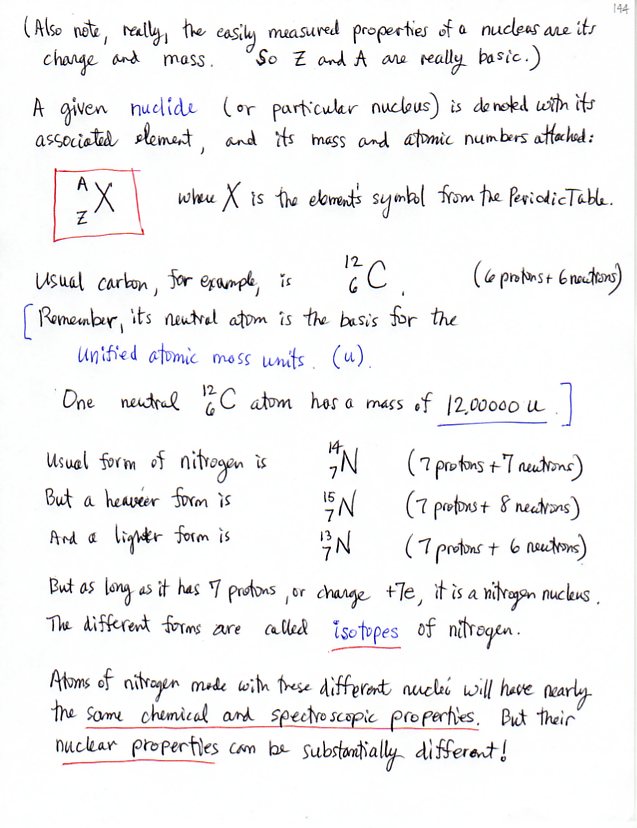 144
(Also note, really, the easily measured properties of a nucleus are its
charge and mass. So Z and A are really basic.)
A given nuclide (or particular nucleus) is denoted with its
associated element, and its mass and atomic numbers attached:
A
Z X where X is the element's symbol from the Periodic Table.
Usual carbon, for example, is 12 6 C. (6 protons + 6 neutrons)
[Remember, its neutral atom is the basis for the
unified atomic mass units. (u).
One neutral 12 6 C atom has a mass of 12.00000 u.]
Usual form of nitrogen is 14 7 N (7 protons + 7 neutrons)
But a heavier form is 15 7 N (7 protons + 8 neutrons)
And a lighter form is 13 7 N (7 protons + 6 neutrons)
But as long as it has 7 protons, or charge +7e, it is a nitrogen nucleus.
The different forms are called isotopes of nitrogen.
Atoms of nitrogen made with these different nuclei will have nearly
the same chemical and spectroscopic properties. But their
nuclear properties can be substantially different!